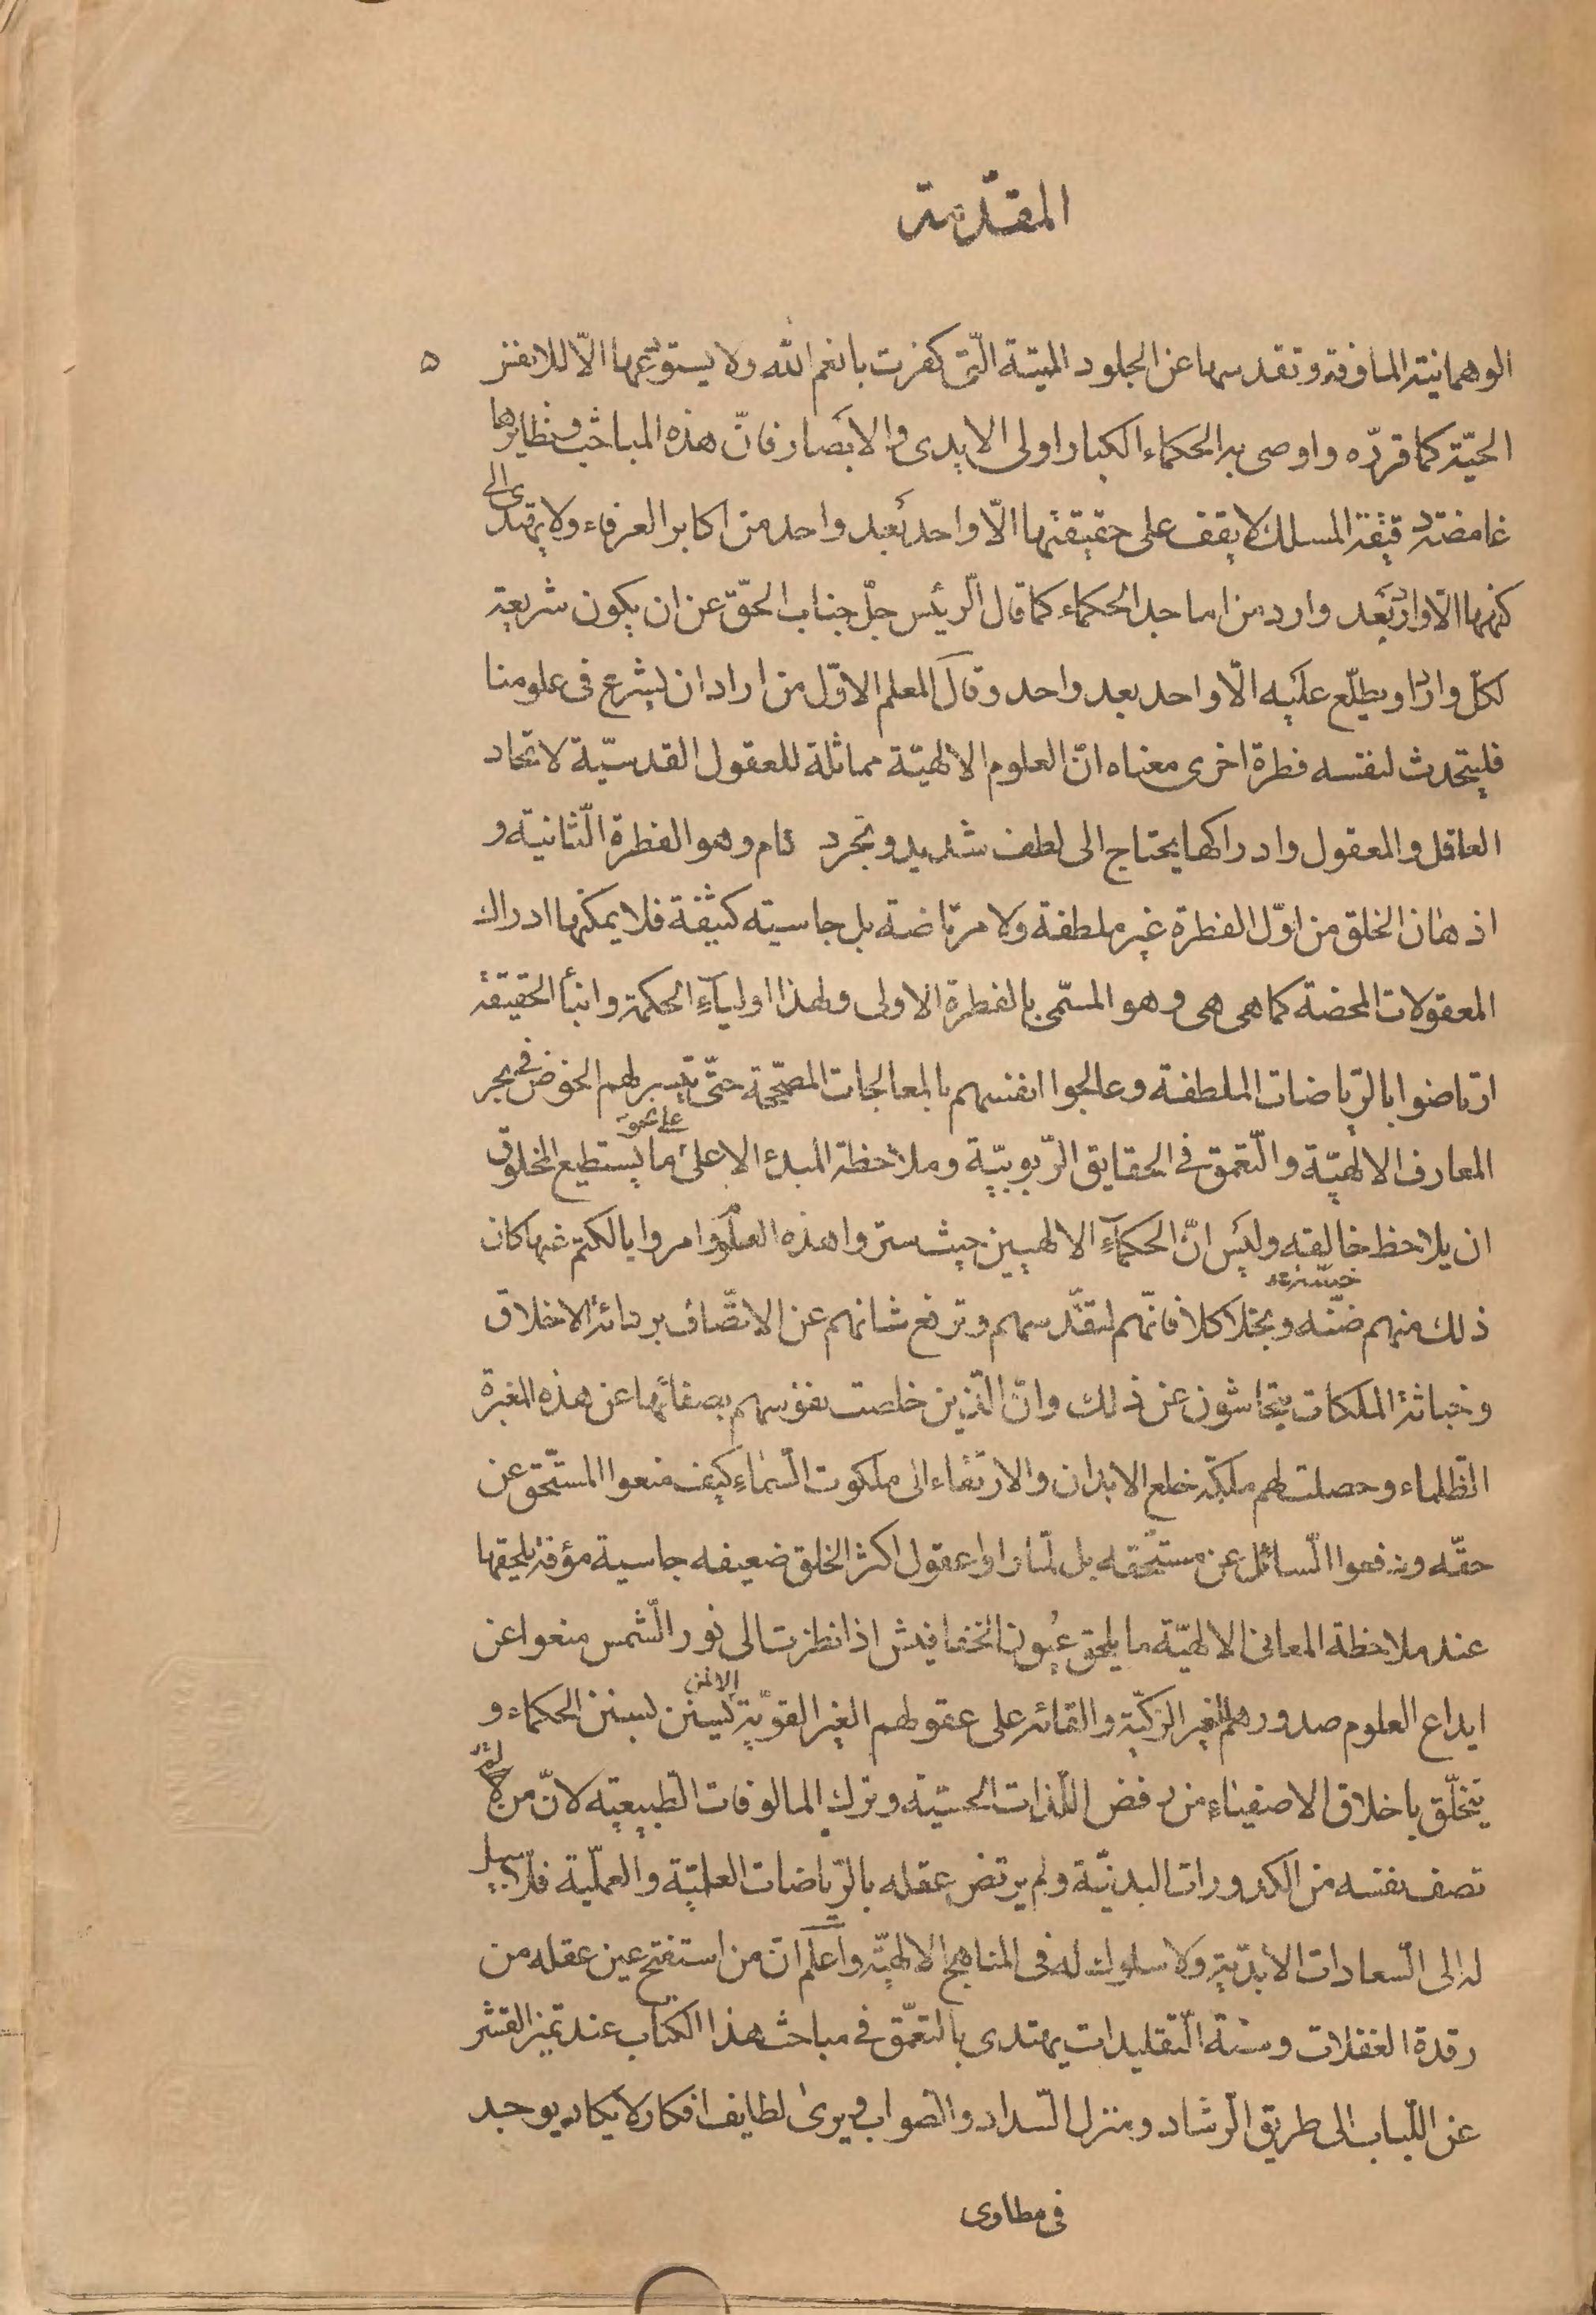 المقدّمة
الوهمانيته المافوقة وتقدسها عن الجلود الميتة الّتى كفرت بانعم الله ولا يستودعها الّا للانفس ۵
الحيّة كما قرّره واوصى به الحكماء الكبار اولى الايدى والابصار فانّ هذه المباحث ونظايرها
غامضة دقيقة المسلك لا يقف على حقيقتها الّا واحد بعد واحد من اكابر العرفاء ولا يهتدى الى
كنهها الّا وارد بعد وارد من اماجد الحكماء كما قال الرّئيس جلّ جناب الحقّ عن ان يكون شريعة
لكلّ وارد او يطلّع عليه الّا واحد بعد واحد وقال المعلم الاوّل من اراد ان يشرع فى علومنا
فليتحدث لنفسه فطرة اخرى معناه انّ العلوم الالهيّة مماثلة للعقول القدسيّة لاتحاد
العاقل والمعقول وادراكها يحتاج الى لطف شديد وتجرد تام وهو الفطرة الثّانية و
اذهان الخلق من اوّل الفطرة غير ملطفة ولا مرتاضة بل جاسيته كثيفة فلا يمكنها ادراك
المعقولات المحضة كما هى هى وهو المسمّى بالفطرة الاولى ولهذا اولياء الحكمة وابنأ الحقيقة
ارتاضوا بالرّياضات الملطفة وعالجوا انفسهم بالمعالجات المصحّحة حتّى تيسر لهم الخوض فى بحر
المعارف الالهيّة والتّعمق فى الحقايق الرّبوبيّة وملاحظة المبدء الاعلى على نحو ما يستطيع المخلوق
ان يلاحظ خالقه وليس انّ الحكماء الالهيين حيث ستروا هذه العلوم وامروا بالكتم عنها كان
ذلك منهم خسّة ضنّه وبخلا كلا فانّهم لتقدّسهم وترفع شانهم عن الاتّصاف برذائل الاخلاق
وخباثة الملكات يتحاشون عن ذلك وانّ الّذين خلصت نفوسهم بصفائها عن هذه المغبرة
الظّلماء وحصلت لهم ملكة خلع الابدان والارتقاء الى ملكوت السّماء كيف منعوا المستحق عن
حقّه ودفعوا السّائل عن مستحّقه بل لمّا راوا عقول اكثر الخلق ضعيفه جاسية مؤفة يلحقها
عند ملاحظة المعانى الالهيّة ما يلحق عيون الخفافيش اذا نظرت الى نور الشّمس منعوا عن
ايداع العلوم صدورهم الغير الزكيّة والقائه على عقولهم الغير القويّة الا لمن يستنن بسنن الحكماء و
يتخلّق باخلاق الاصفياء من رفض اللّذات الحسيّة وترك المالوفات الطّبيعيّة لانّ من لم
تصف نفسه من الكدورات البدنيّة ولم يرتض عقله بالرّياضات العلميّة والعمليّة فلا سبيل
له الى السّعادات الابديّة ولا سلوك له فى المناهج الالهيّة واعلم انّ من استفتح عين عقله من
رقدة الغفلات وسنة التّقليدات يهتدى بالتعمّق فى مباحث هذا الكتاب عند تميز القشر
عن اللّباب الى طريق الرّشاد ومنزل السّداد والصواب ويرى لطايف افكار لا يكاد يوجد
فى مطاوى